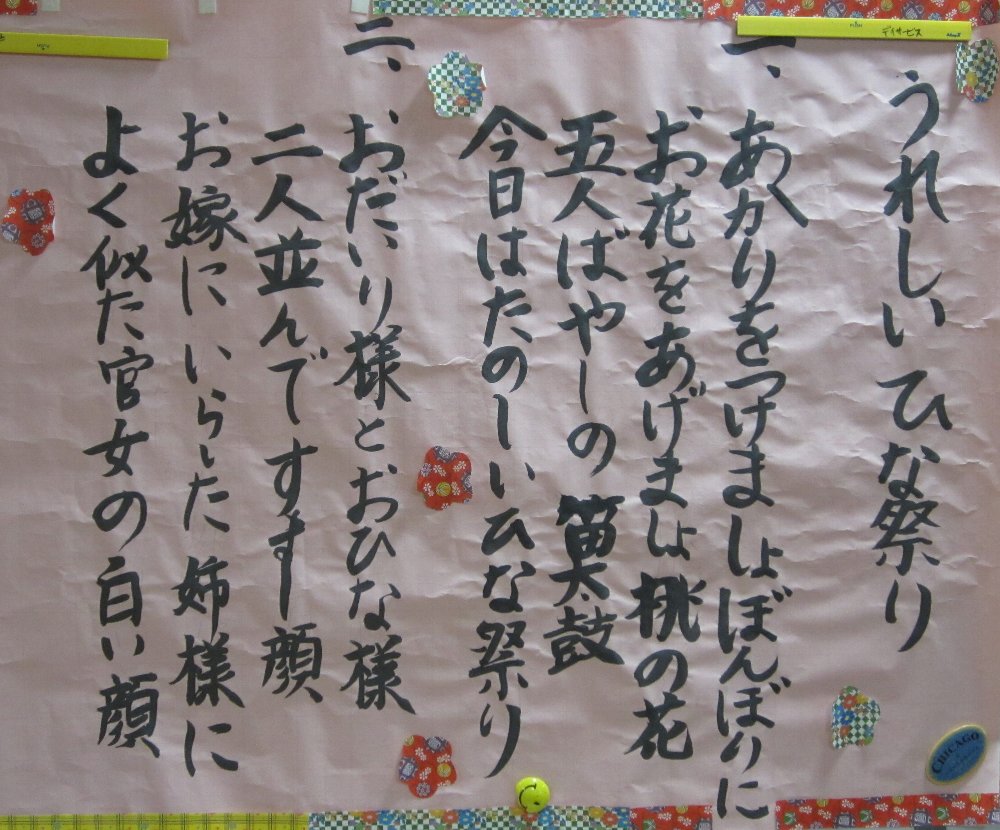 うれしいひな祭り
一、
あかりをつけましょぼんぼりに
お花をあげましょ桃の花
五人ばやしの笛太鼓
今日はたのしいひな祭り
二、
おだいり様とおひな様
二人並んですまし顔
お嫁にいらした姉様に
よく似た官女の白い顔
デイサービス
CHICAGO